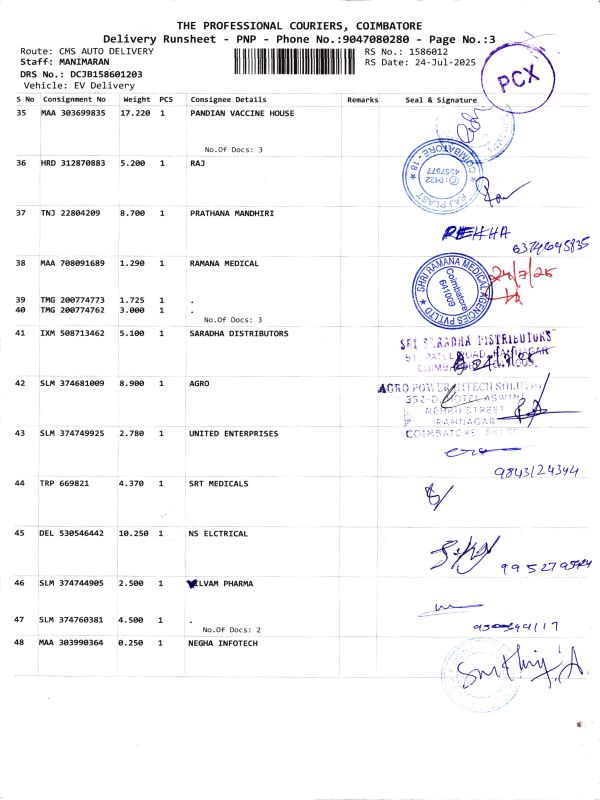 THE PROFESSIONAL COURIERS, COIMBATORE
Delivery Runsheet - PNP - Phone No.:9047080280 - Page No.:3
Route: CMS AUTO DELIVERY RS No.: 1586012
Staff: MANIMARAN RS Date: 24-Jul-2025
DRS No.: DCJB158601203
Vehicle: EV Delivery
PCX
S No Consignment No Weight PCS Consignee Details Remarks Seal & Signature
35 MAA 303699835 17.220 1 PANDIAN VACCINE HOUSE
No.Of Docs: 3
36 HRD 312870883 5.200 1 RAJ
RAJ PLAST COIMBATORE - 18
✆: 0422
4357977
37 TNJ 22804209 8.700 1 PRATHANA MANDHIRI
REKHA
6374645835
38 MAA 708091689 1.290 1 RAMANA MEDICAL
SHRI RAMANA MEDICAL AGENCIES PVT LTD
Coimbatore
641009
24/7/25
39 TMG 200774773 1.725 1 .
40 TMG 200774762 3.000 1 .
No.Of Docs: 3
41 IXM 508713462 5.100 1 SARADHA DISTRIBUTORS
SRI SARADHA DISTRIBUTORS
42 SLM 374681009 8.900 1 AGRO
AGRO POWER
352-D, HOTEL ASWINI
NEHRU STREET
RAMNAGAR
COIMBATORE
43 SLM 374749925 2.780 1 UNITED ENTERPRISES
9843124344
44 TRP 669821 4.370 1 SRT MEDICALS
45 DEL 530546442 10.250 1 NS ELCTRICAL
46 SLM 374744905 2.500 1 VELVAM PHARMA
47 SLM 374760381 4.500 1 .
No.Of Docs: 2
48 MAA 303990364 0.250 1 NEGHA INFOTECH